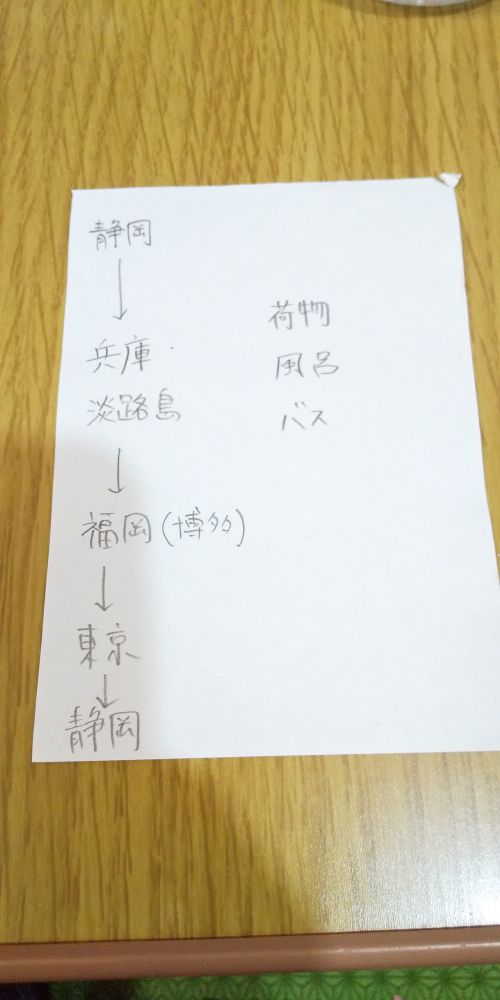 静岡
↓
兵庫
淡路島
↓
福岡(博多)
↓
東京
↓
静岡
荷物
風呂
バス